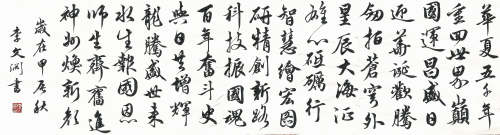 华夏五千年
屹四世界巅
国运昌盛日
迎兼诞欢腾
剑指苍穹外
星辰大海征
雄心砥砺行
智慧绘宏图
研精创新路
科技振国魂
百年奋斗史
与日共增辉
龙腾盛世来
水生报国恩
师生齐奋进
神州焕新颜
岁在甲辰秋
李文渊书